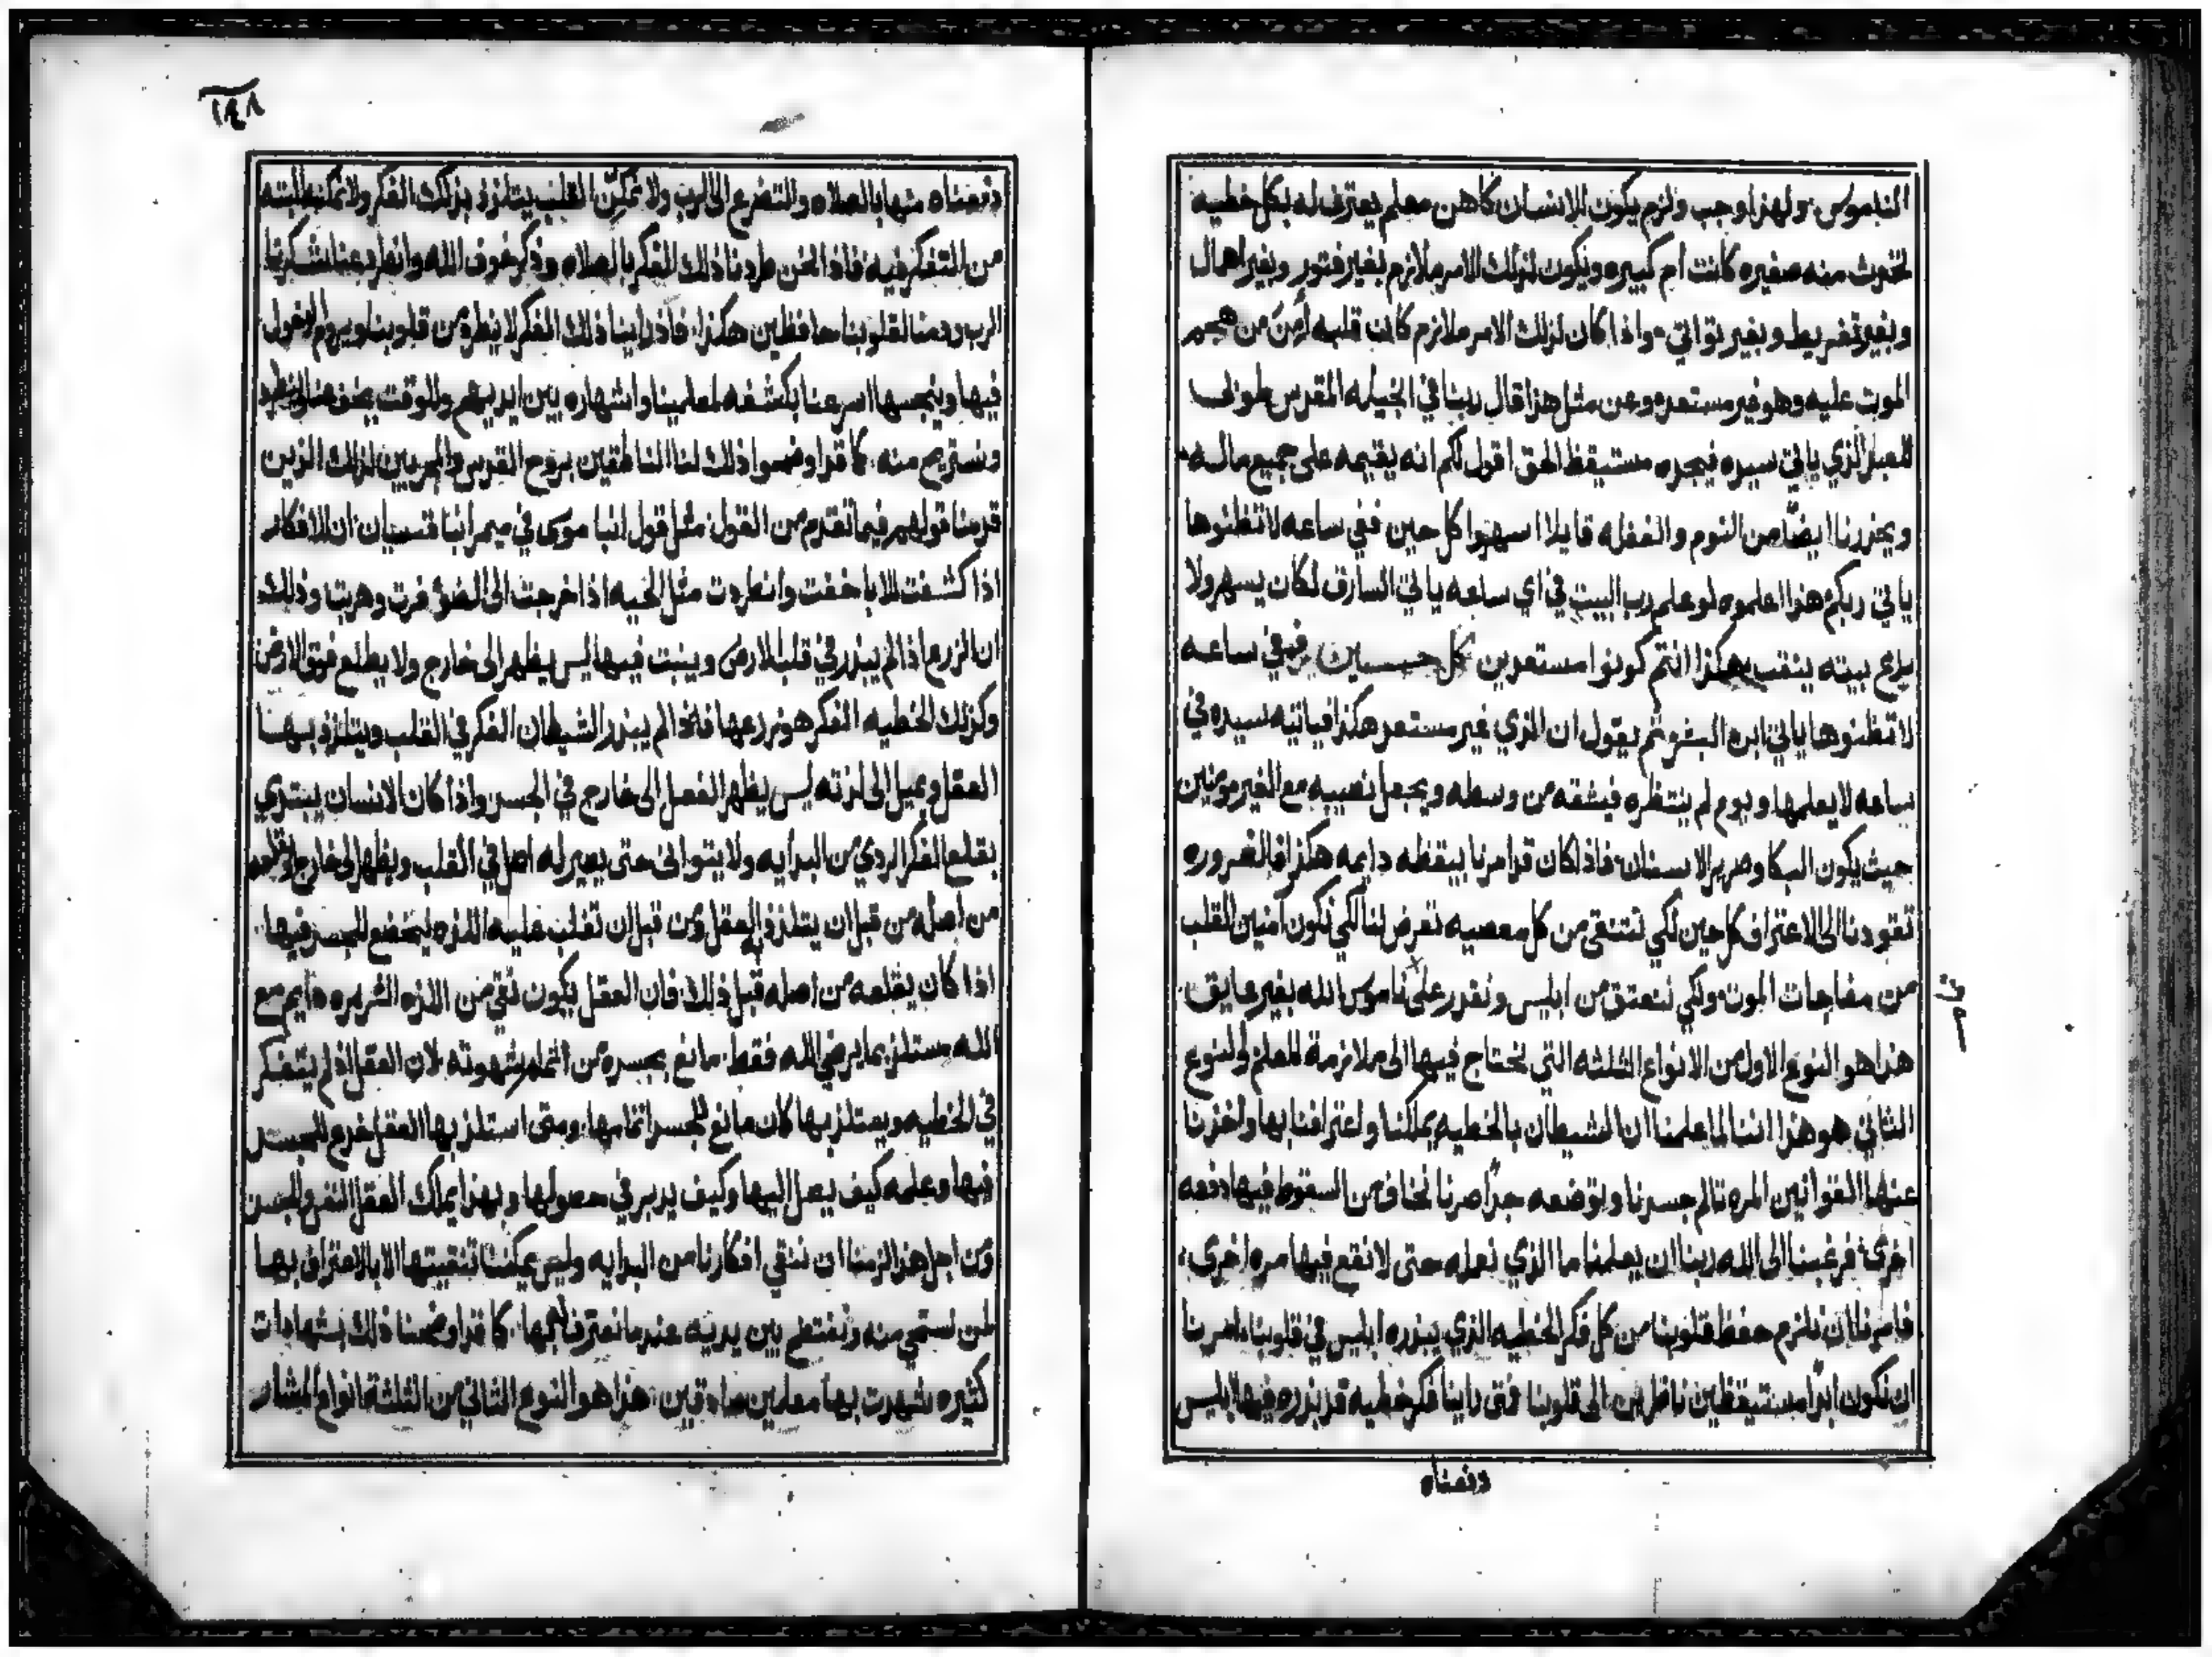 الناموس. ولهذا وجب ولزم يكون للانسان كاهن معلم يعترف له بكل خطيه
تحدث منه صغيره كانت ام كبيره ويكون لذلك الامر ملازم بغير فتور وبغير اهمال
وبغير تفريط وبغير تواني. واذا كان لذلك الامر ملازم كانت قلبه أمن من هجم
الموت عليه وهو غير مستعد. وعن مثل هذا قال ربنا في انجيله المقدس طوبى
للعبد الذي ياتي سيده فيجده مستيقظ الحق اقول لكم انه يقيمه على جميع ماله
ويحذرنا ايضًا من النوم والغفله قايلا اسهروا كل حين ففي ساعه لا تظنوها
ياتي ربكم هذا اعلموه لو علم رب البيت في اي ساعه ياتي السارق لكان يسهر ولا
يدع بيته ينقب هكذا انتم كونوا مستعدين كل حين ففي ساعه
لا تظنوها ياتي ابن البشر ثم يقول ان الذي غير مستعد هكذا فياتيه سيده في
ساعه لا يعلمها ويوم لم ينتظره فيشقه من وسطه ويجعل نصيبه مع الغير مومنين
حيث يكون البكا وصرير الاسنان. فاذا كان قد امرنا بيقظه دايمه هكذا فالضروره
تقودنا الى الاعتراف كل حين لكي نتنقى من كل معصيه تعرض لنا لكي نكون امنين القلب
من مفاجات الموت ولكي نتعتق من ابليس ونقدر على ناموس الله بغير عايق
هذا هو النوع الاول من الانواع الثلثه التي نحتاج فيها الى ملازمة المعلم والنوع
الثاني هو هذا اننا لما علمنا ان الشيطان بالخطيه يملكنا واعترافنا بها واخذنا
عنها القوانين المره تالم جسدنا وبوضعه جدًا صرنا نخاف من السقوط فيها دفعه
اخرى. فرغبنا الى الله ربنا ان يعلمنا ما الذي نعمله حتى لا نقع فيها مره اخرى.
فامرنا ان نلزم حفظ قلوبنا من كل فكر الخطيه الذي يبذره ابليس في قلوبنا. امرنا
ان نكون ابدًا مستيقظين ناظرين الى قلوبنا فمتى راينا فكر خطيه قد بذره فيها ابليس
دفعناه
١٤٨
دفعناه منها بالصلاه والتضرع الى الرب ولا نمكنّ القلب يتلذذ بذلك الفكر ولا نمكنه البته
من التفكر فيه فاذا نحن طردنا ذلك الفكر بالصلاه وذكر خوف الله وانطرد عنا شكرنا
الرب ودمنا لقلوبنا محافظين هكذا. فاذا راينا ذلك الفكر لا ينطرد من قلوبنا ويروم الدخول
فيها وينجسها اسرعنا بكشفه لمعلمينا واشهاره بين ايديهم وللوقت
ونستريح منه. كما قد اوضحوا ذلك لنا الناطقين بروح القدس والمجربين لذلك الذين
قدمنا قولهم فيما تقدم من القول مثل قول انبا موسى في ميمر انبا قسيان ان الافكار
اذا كشفت للابا خفت وانطردت مثل الحيه اذا خرجت الى الضوء فرت وهربت وذلك
ان الزرع اذا لم يبذر في قلب الارض وينبت فيها ليس يظهر الى خارج ولا يطلع فوق الارض
وكذلك الخطيه الفكر هو زرعها فاذا لم يبذر الشيطان الفكر في القلب ويتلذذ بها
العقل ويميل الى لذته ليس يظهر الفعل الى خارج في الجسد واذا كان الانسان يبتدي
بقلع الفكر الردي من البدايه ولا يتوانى حتى يصير له اصل في القلب ويظهر الى خارج
من اصله من قبل ان يتلذذ العقل ومن قبل ان تغلب عليه اللذه ليخضع للجسد فيها
اذا كان يقلعه من اصله قبل ذلك. فان العقل يكون نقي من اللذه الشريره دايم مع
الله مستلذ بما يرضي الله فقط. مانع بجسده من اتمام شهوته. لان العقل اذا لم يتفكر
في الخطيه ويستلذ بها كان مانع للجسد اتمامها. ومتى استلذ بها العقل خدع الجسد
فيها وعلمه كيف يصل اليها وكيف يدبر في حصولها وبهذا يملك العقل النفس والجسد
ومن اجل هذا لزمنا ان ننقي افكارنا من البدايه وليس يمكننا تنقيتها الا بالاعتراف بها
لمن نستحي منه ونفتضح بين يديه عندما نعترف بها. كما قد اوضحنا ذلك بشهادات
كثيره شهدت بها معلمين صادقين. هذا هو النوع الثاني من الثلثة انواع المشار